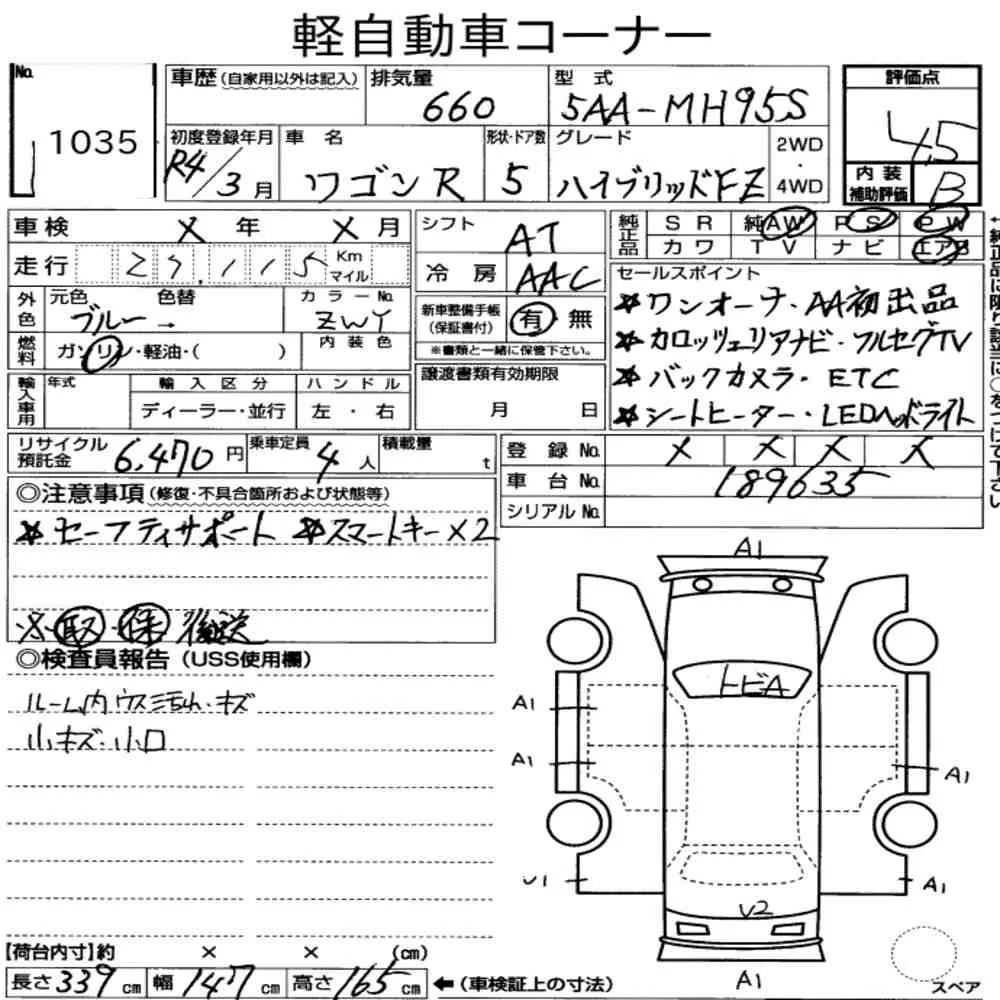 軽自動車コーナー
No. 1035
車歴 (自家用以外は記入) 排気量 660 型式 5AA-MH95S
評価点 4.5
初度登録年月 R4/3月 車名 ワゴンR 形状・ドア数 5 グレード ハイブリッドFZ 2WD・4WD
内装補助評価 B
車検 X年 X月
走行 27,115 Km マイル
外色 元色 ブルー→ 色替 カラーNo. ZWY
燃料 ガソリン・軽油・( ) 内装色
輸入車用 年式 輸入区分 ディーラー・並行 ハンドル 左・右
シフト AT
冷房 AAC
新車整備手帳(保証書付) 有 無
※書類と一緒に保管下さい。
譲渡書類有効期限
月 日
純正品 SR 純AW PS PW
カワ TV ナビ エアB
セールスポイント
*ワンオーナ・AA初出品
*カロッツェリアナビ・フルセグTV
*バックカメラ・ETC
*シートヒーター・LEDヘッドライト
リサイクル預託金 6,470円 乗車定員 4人 積載量 t
登録No. X X X X
車台No. 189635
シリアルNo.
◎注意事項(修復・不具合箇所および状態等)
*セーフティサポート *スマートキーX2
※取・保後送
◎検査員報告(USS使用欄)
ルーム内ウス汚れ・キズ
小キズ・小凹
A1
トビA
A1
A1
A1
U1
A1
U2
A1
スペア
【荷台内寸】約 × × (cm)
長さ 339 cm 幅 147 cm 高さ 165 cm ←(車検証上の寸法)